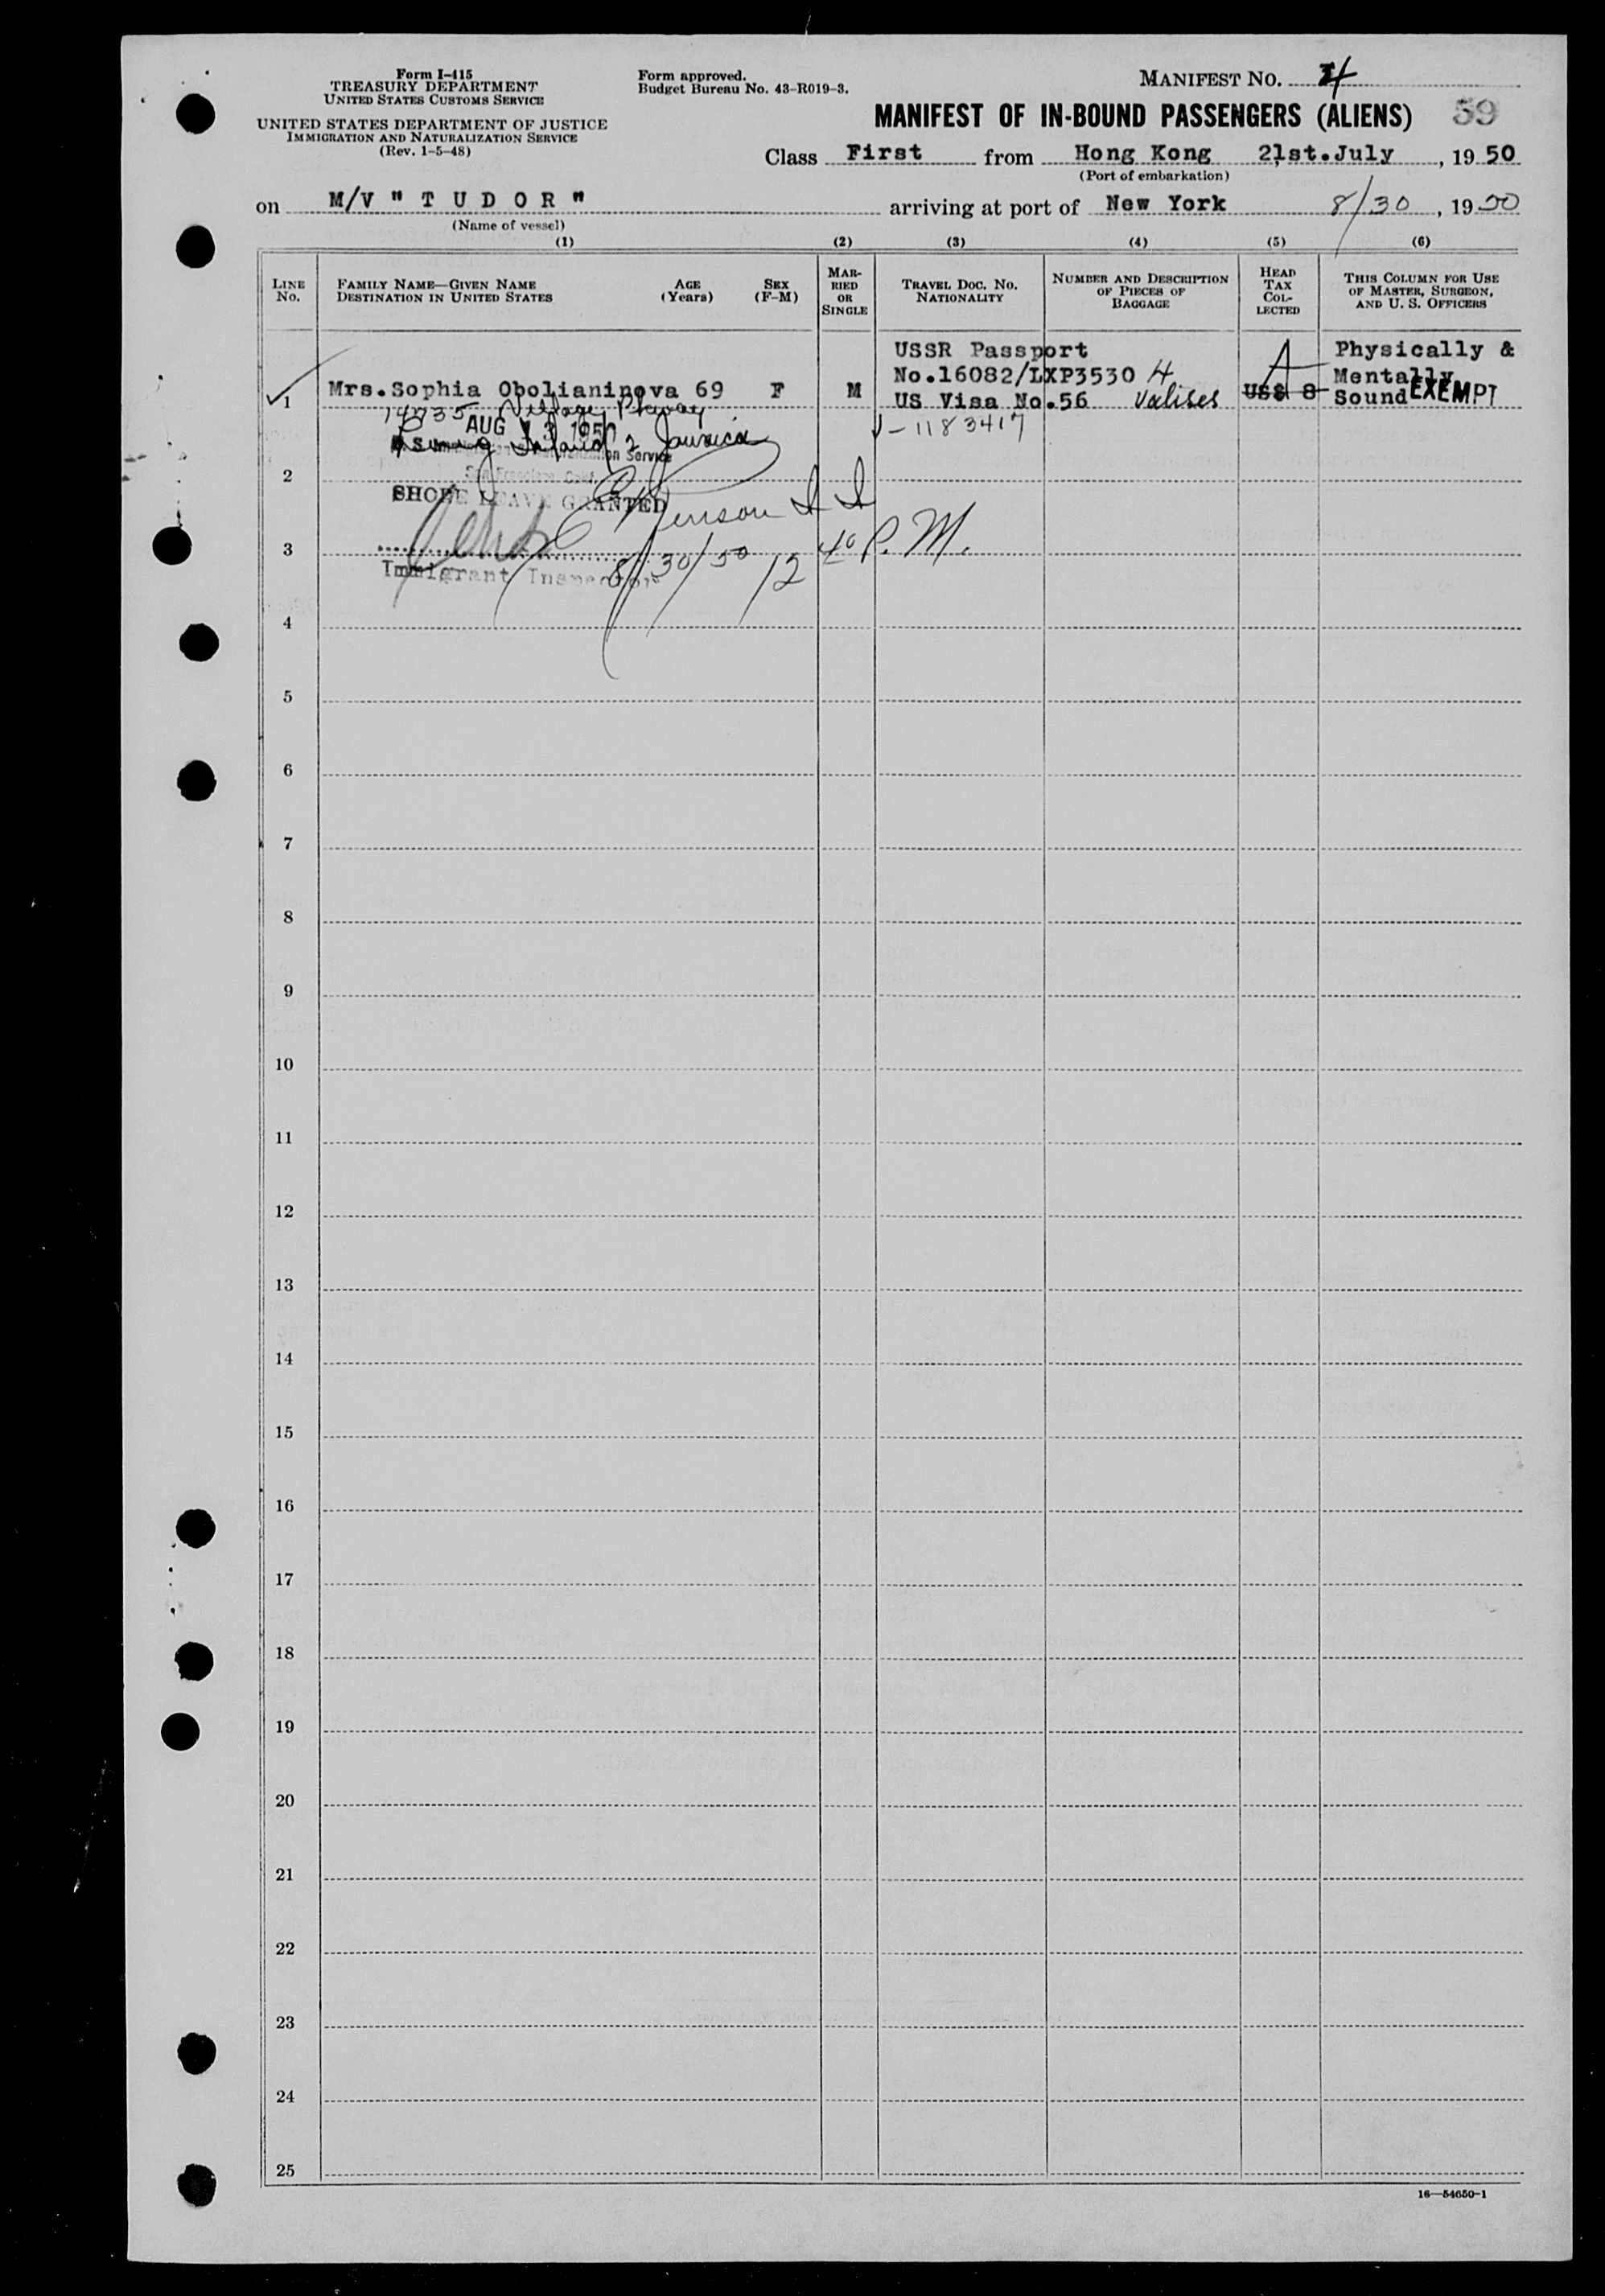 Form I-415
TREASURY DEPARTMENT
UNITED STATES CUSTOMS SERVICE
UNITED STATES DEPARTMENT OF JUSTICE
IMMIGRATION AND NATURALIZATION SERVICE
(Rev. 1-5-48)
Form approved.
Budget Bureau No. 43-R019-3.
MANIFEST NO. 4
MANIFEST OF IN-BOUND PASSENGERS (ALIENS) 59
Class First from Hong Kong 21st.July, 1950
(Port of embarkation)
on M/V " T U D O R " arriving at port of New York 8/30, 1950
(Name of vessel)
(1) (2) (3) (4) (5) (6)
LINE No.
FAMILY NAME—GIVEN NAME
DESTINATION IN UNITED STATES
AGE (Years)
SEX (F-M)
MARRIED OR SINGLE
TRAVEL DOC. NO.
NATIONALITY
NUMBER AND DESCRIPTION OF PIECES OF BAGGAGE
HEAD TAX COLLECTED
THIS COLUMN FOR USE OF MASTER, SURGEON, AND U. S. OFFICERS
1 Mrs.Sophia Obolianinova 69 F M
USSR Passport
No.16082/LXP3530
US Visa No.56
4 Valises
US$ 8
A
Physically &
Mentally
Sound EXEMPT
Village Pkway
AUG 1950
Island Jamaica
V-1183417
2
SHORE LEAVE GRANTED
3
8/30/50 12 40 P.M.
Immigrant Inspector
4
5
6
7
8
9
10
11
12
13
14
15
16
17
18
19
20
21
22
23
24
25
16—54650-1